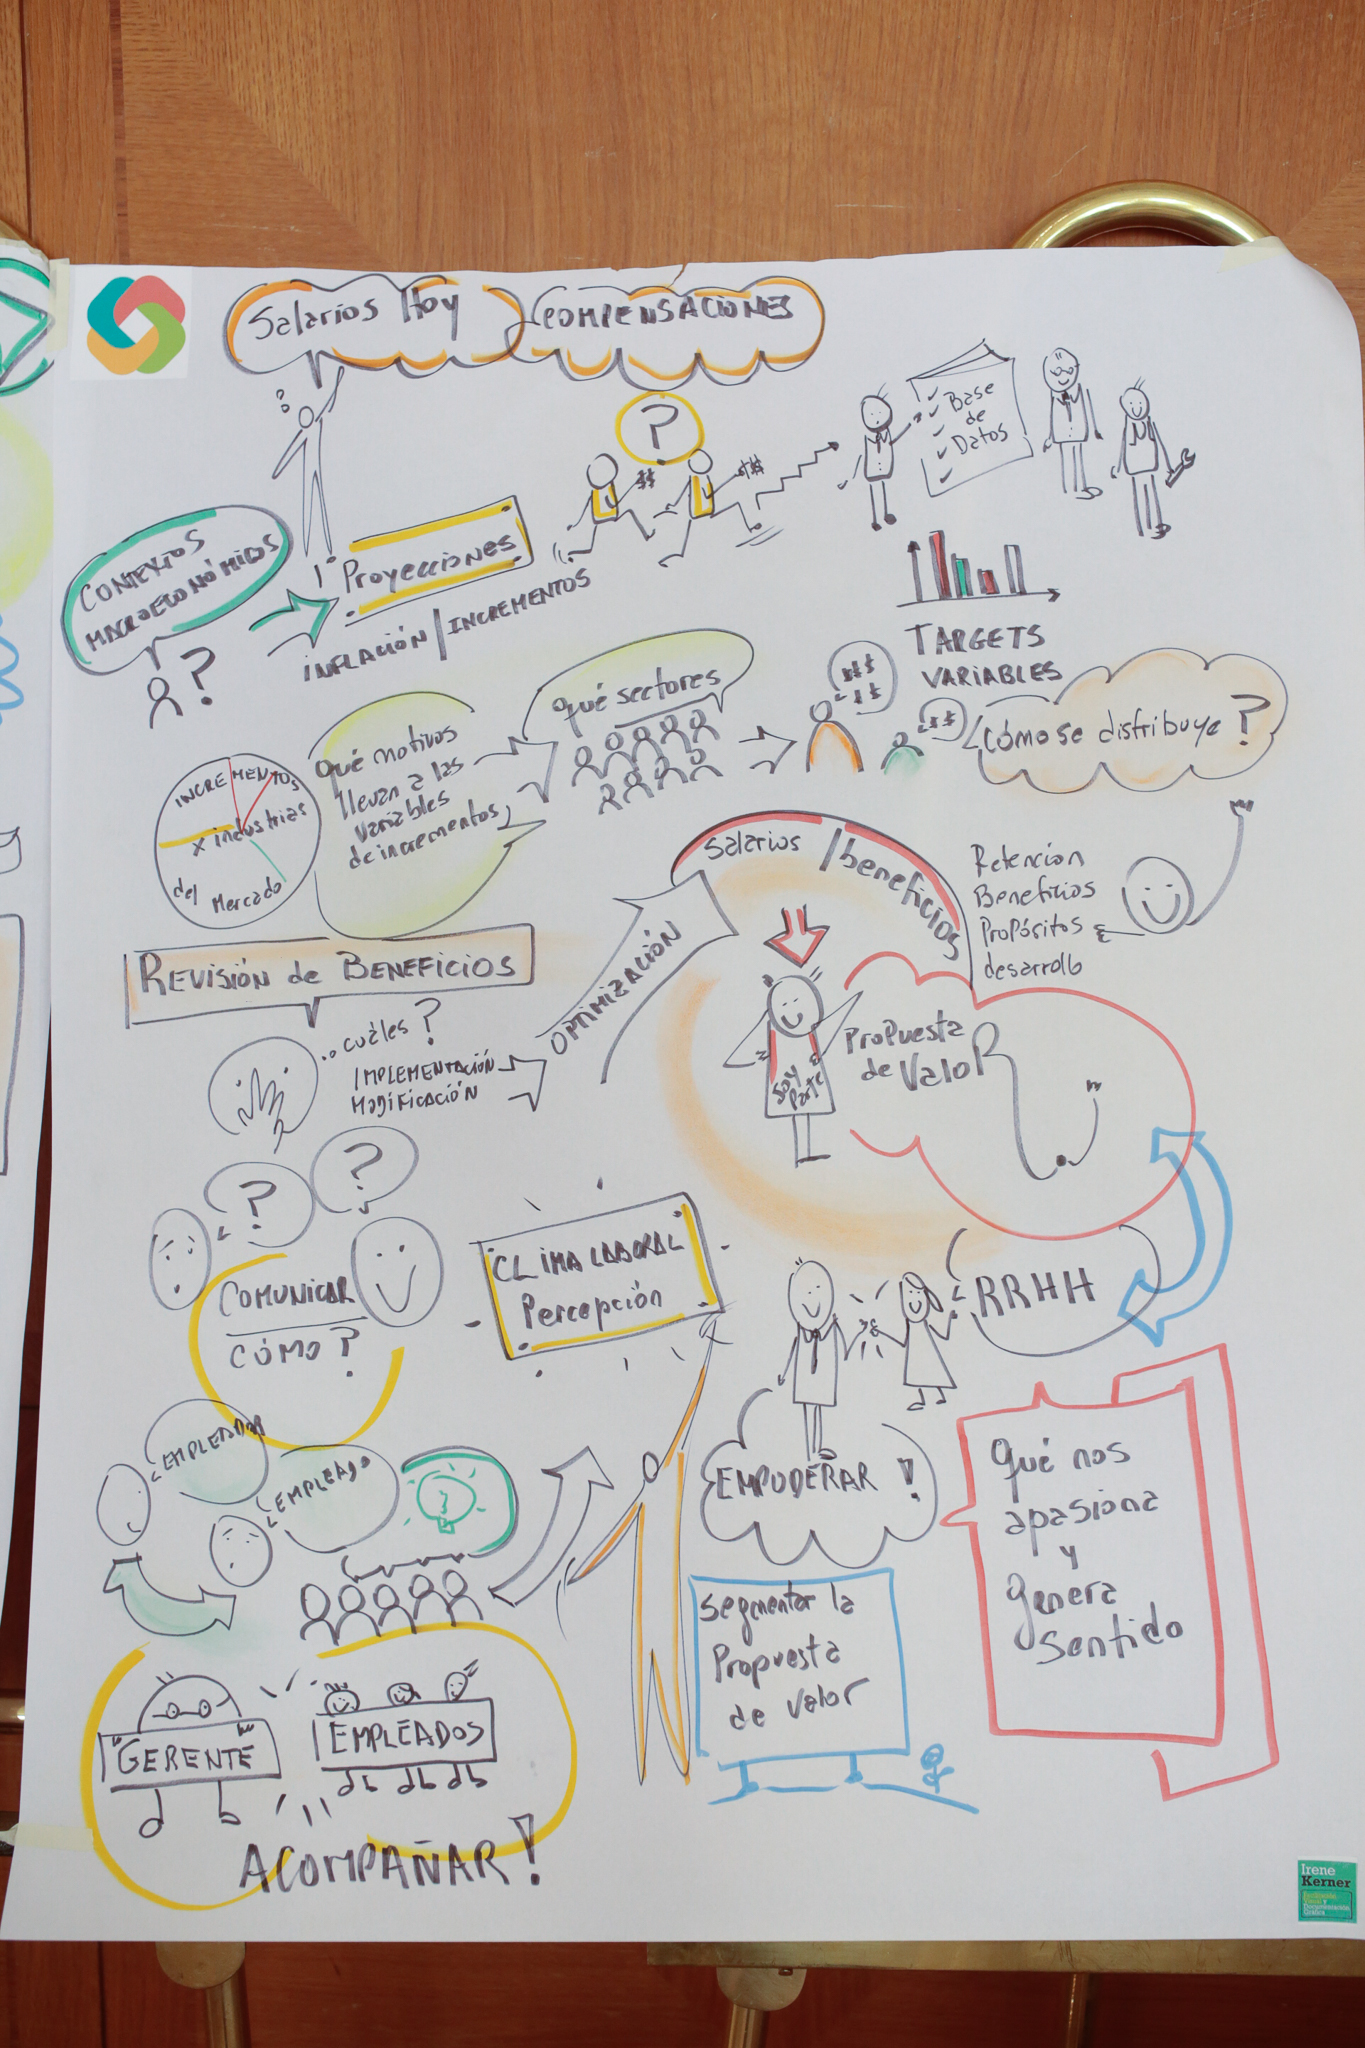 Salarios Hoy
COMPENSACIONES
?
?
Base
de
Datos
CONTEXTOS
MACROECONÓMICOS
?
1º Proyecciones
INFLACIÓN / INCREMENTOS
$$
$$
TARGETS
VARIABLES
INCREMENTOS
x industrias
del Mercado
Qué motivos
llevan a las
variables
de incrementos
Qué sectores
$$$
$$
$$
Cómo se distribuye?
REVISIÓN de BENEFICIOS
..cuáles?
IMPLEMENTACIÓN
MODIFICACIÓN
OPTIMIZACIÓN
Salarios / beneficios
Retención
Beneficios
Propósitos
desarrollo
Soy
Parte
Propuesta
de Valor
?
?
COMUNICAR
CÓMO?
CLIMA LABORAL
Percepción
RRHH
EMPLEADOR
EMPLEADO
EMPODERAR!
Qué nos
apasiona
y
genera
sentido
Segmentar la
Propuesta
de valor
GERENTE
EMPLEADOS
ACOMPAÑAR!
Irene
Kerner
Facilitación
Visual y
Documentación
Gráfica